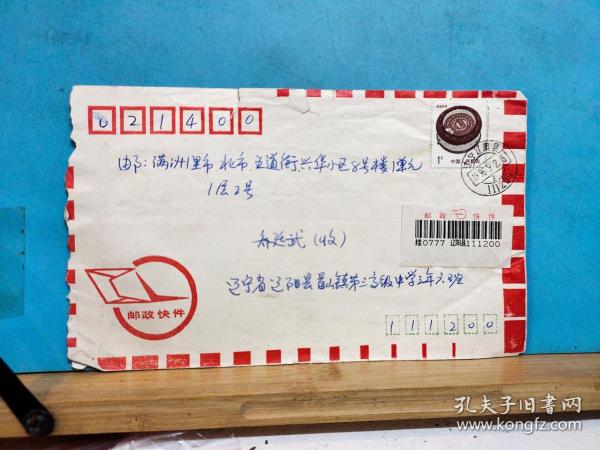 021400
内邮：满洲里市 北市 五道街 兴华小区8号楼1单元
1层2号
乔延武(收)
辽宁省辽阳县首山镇第三高级中学三年六班
111200
1元
中国人民邮政
邮政快件
挂0777 辽阳县111200
邮政快件
孔夫子旧书网
www.kongfz.com